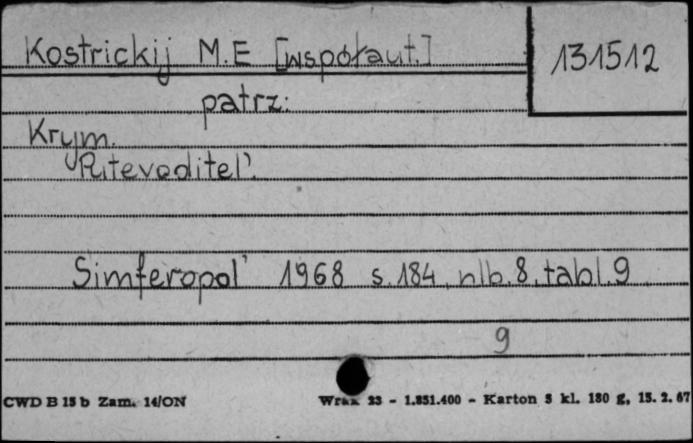 Kostrickij M.E [współaut.] 131512
patrz:
Krym.
Putevoditel'.
Simferopol' 1968 s.184, nlb.8, tabl.9
9
CWD B 15 b Zam. 14/ON Wrak 23 - 1.851.400 - Karton 5 kl. 180 g, 15. 2. 67